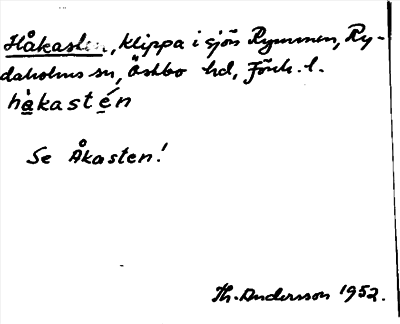 Håkasten, klippa i sjön Rymmen, Ry-
daholms sn, Östbo hd, Jönk. l.
hàkastén
Se Åkasten!
Th. Andersson 1952.